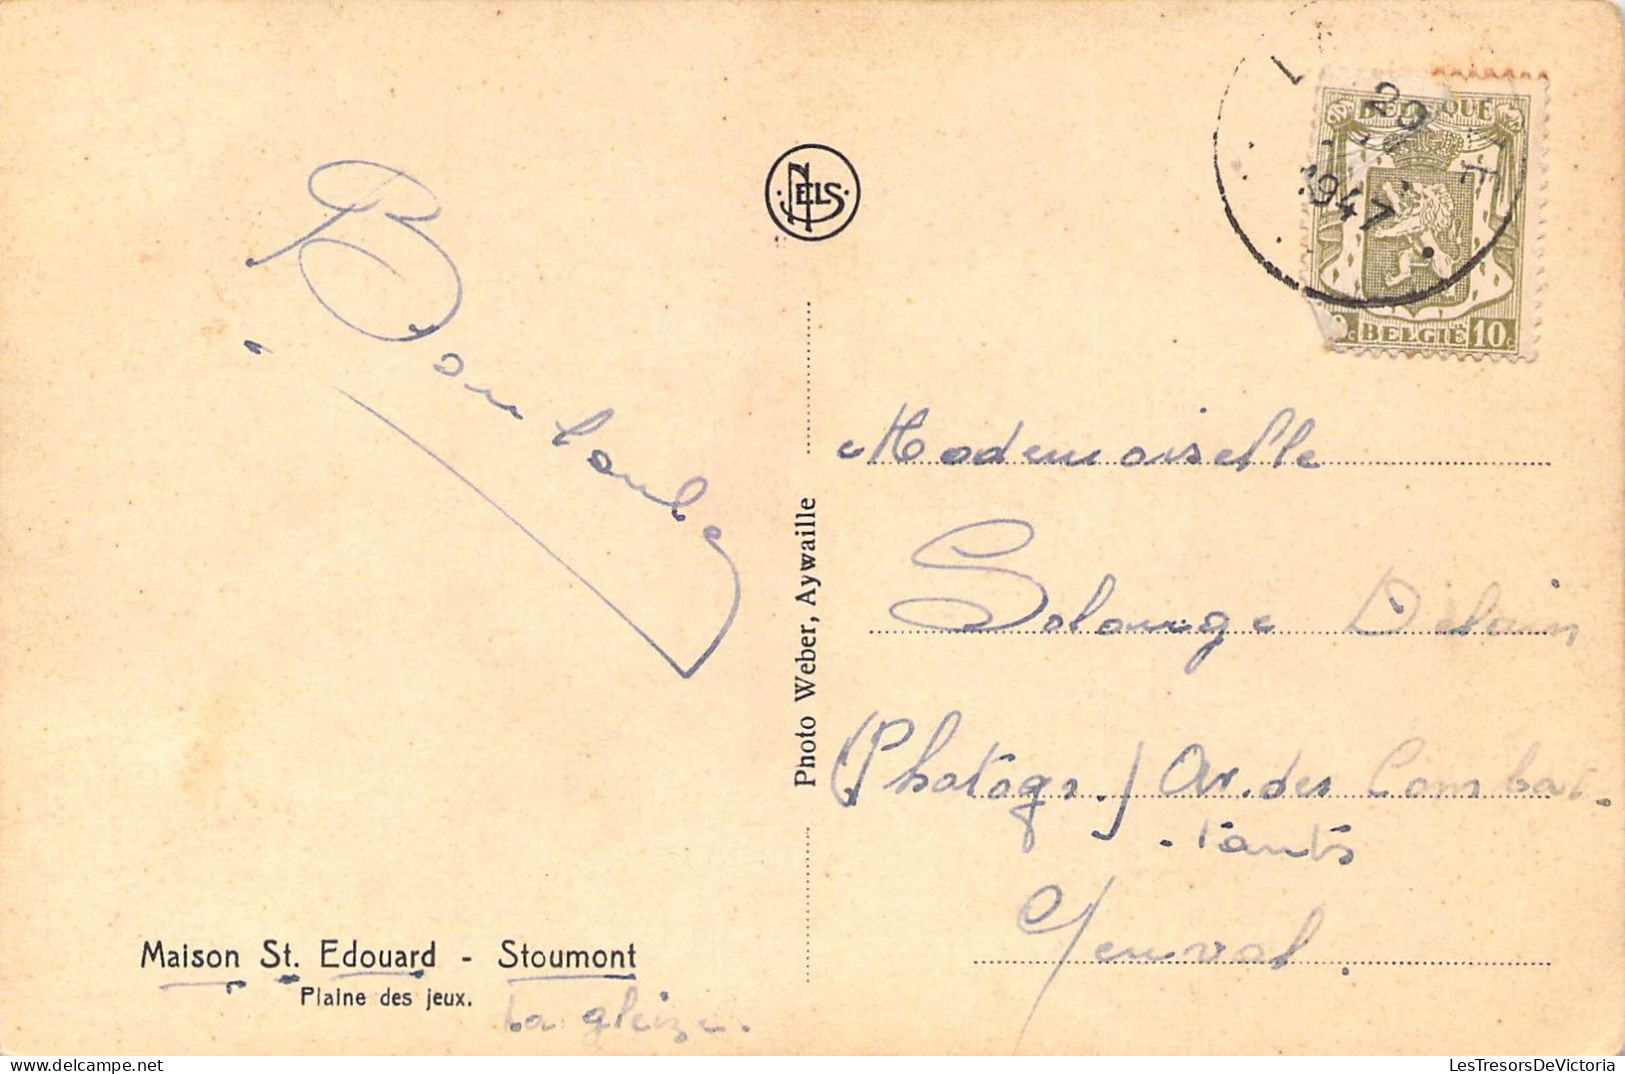 NELS
BELGIQUE
20
1947
10c BELGIE 10c
Mademoiselle
Solange Delain
(Photogr.) Av. des Combat-
-tants
Genval.
Photo Weber, Aywaille
Maison St. Edouard - Stoumont
Plaine des jeux.
La gleize.
LesTresorsDeVictoria.com